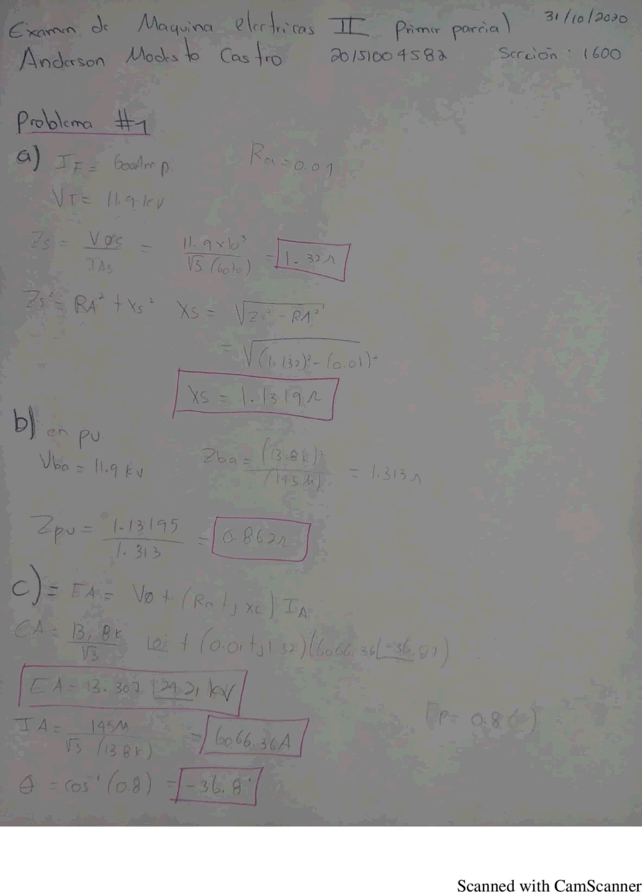 Examen de Maquina electricas II Primer parcial 31/10/2020
Anderson Modesto Castro 20151004582 Sección: 1600
Problema #1
a) IF = 600Amp Ra = 0.01
VT = 11.9 kV
Zs = VØs / IAs = 11.9x10³ / √3 (6070) = 1.32Ω
Zs² = RA² + Xs² Xs = √Zs² - RA²
= √(1.132)² - (0.01)²
Xs = 1.1319Ω
b) en pu
Vba = 11.9 kV Zba = (13.8k)² / (145M) = 1.313Ω
Zpu = 1.13195 / 1.313 = 0.862Ω
c) = EA = VØ + (Ra + j xc) IA
EA = 13.8k / √3 + (0.01 + j1.32)(6066.36
EA = 13.307 kV
IA = 145M / √3 (13.8k) = 6066.36A Fp = 0.8 (-)
θ = cos⁻¹ (0.8) = -36.8°
Scanned with CamScanner